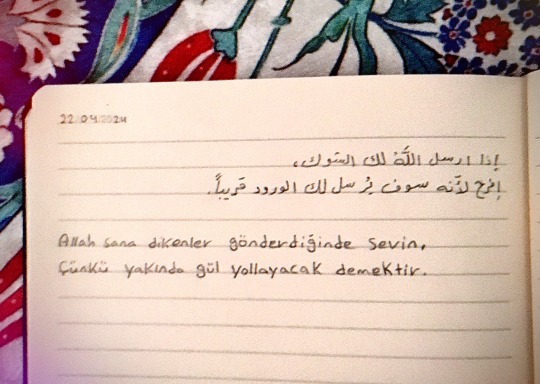 22/04/2024
إذا ارسل اللّهُ لك الشوك،
إفرح لأنه سوف يُرسل لك الورود قريباً.
Allah sana dikenler gönderdiğinde sevin,
Çünkü yakında gül yollayacak demektir.